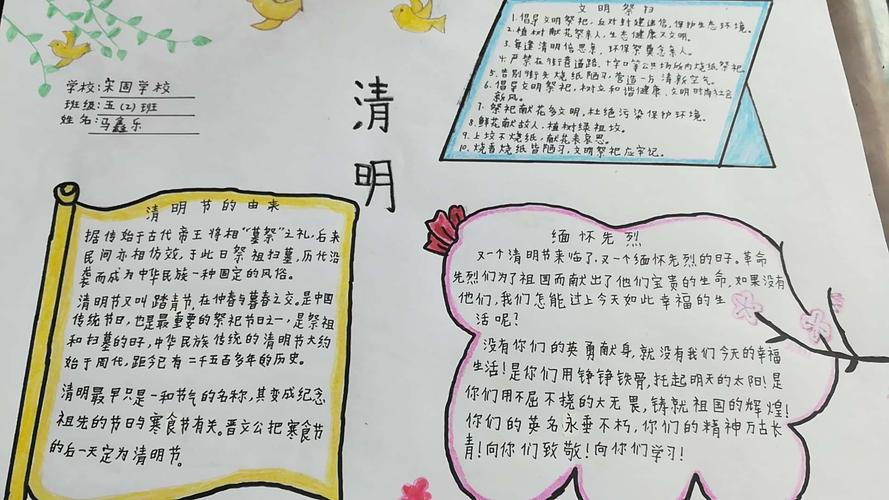 学校:宋固学校
班级:五(2)班
姓名:马鑫乐
清明
文明祭扫
1.倡导文明祭祀,反对封建迷信,保护生态环境。
2.植树献花祭亲人,生态健康又文明。
3.每逢清明倍思亲,环保祭奠念亲人。
4.严禁在街巷道路、十字口等公共场所内烧纸祭祀。
5.告别街头烧纸陋习,营造一方清新空气。
6.倡导文明祭祀,树立和谐健康、文明时尚社会
新风。
7.祭祀献花多文明,杜绝污染保护环境。
8.鲜花献故人,植树绿祖坟。
9.上坟不烧纸,献花表哀思。
10.烧香烧纸皆陋习,文明祭祀应牢记。
清明节的由来
据传始于古代帝王将相“墓祭”之礼,后来
民间亦相仿效,于此日祭祖扫墓,历代沿
袭而成为中华民族一种固定的风俗。
清明节又叫踏青节,在仲春与暮春之交。是中国
传统节日,也是最重要的祭祀节日之一,是祭祖
和扫墓的日子,中华民族传统的清明节大约
始于周代,距今已有二千五百多年的历史。
清明最早只是一种节气的名称,其变成纪念
祖先的节日与寒食节有关。晋文公把寒食节
的后一天定为清明节。
缅怀先烈
又一个清明节来临了,又一个缅怀先烈的日子。革命
先烈们为了祖国而献出了他们宝贵的生命,如果没有
他们,我们怎能过上今天如此幸福的生
活呢?
没有你们的英勇献身,就没有我们今天的幸福
生活!是你们用铮铮铁骨,托起明天的太阳!是
你们用不屈不挠的大无畏,铸就祖国的辉煌!
你们的英名永垂不朽,你们的精神万古长
青!向你们致敬!向你们学习!